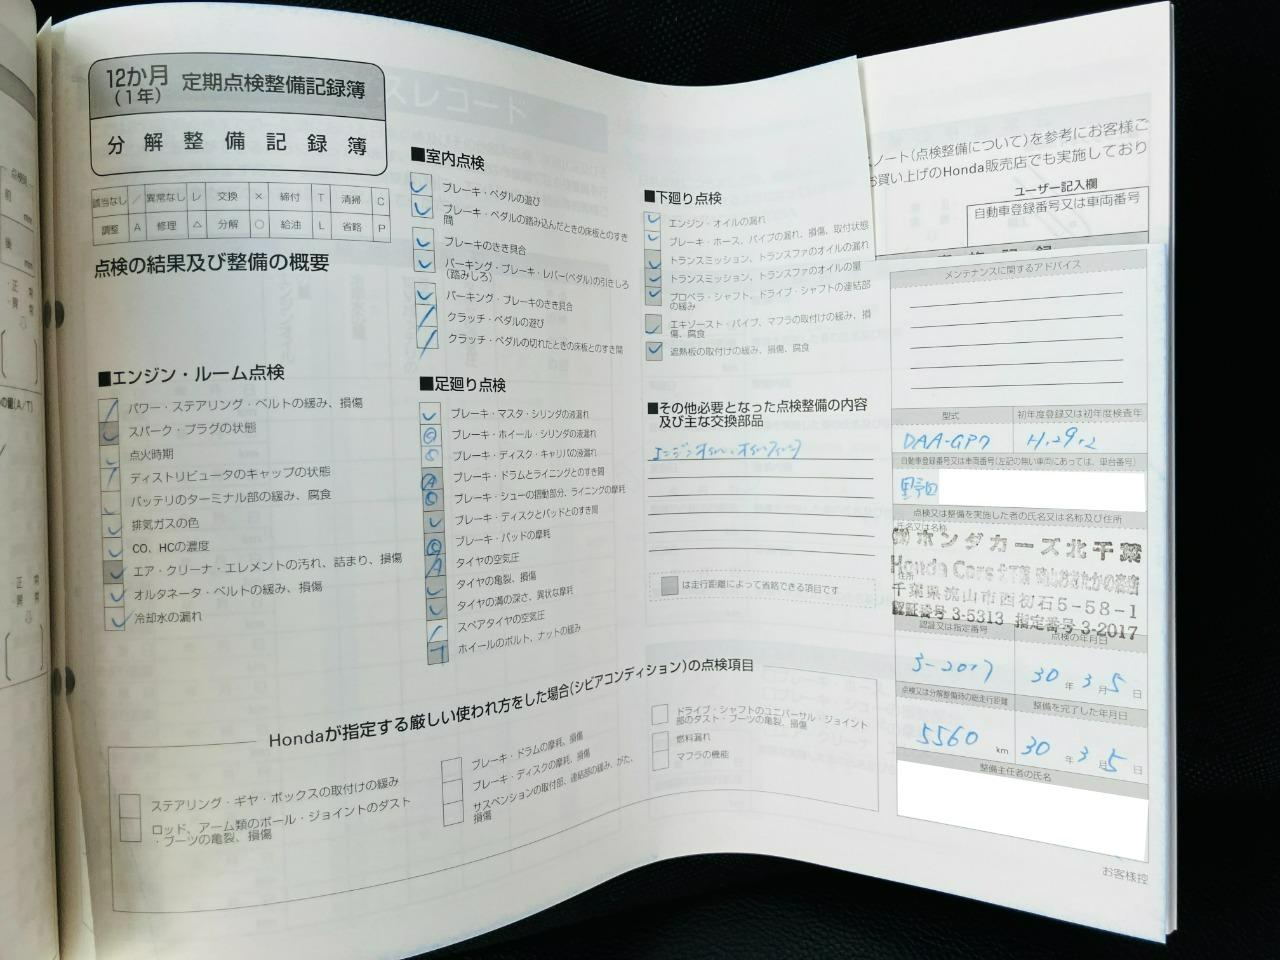 12か月
(1年)
定期点検整備記録簿
分解整備記録簿
該当なし / 異常なし レ 交換 × 締付 T 清掃 C
調整 A 修理 △ 分解 ○ 給油 L 省略 P
点検の結果及び整備の概要
■エンジン・ルーム点検
パワー・ステアリング・ベルトの緩み、損傷
スパーク・プラグの状態
点火時期
ディストリビュータのキャップの状態
バッテリのターミナル部の緩み、腐食
排気ガスの色
CO、HCの濃度
エア・クリーナ・エレメントの汚れ、詰まり、損傷
オルタネータ・ベルトの緩み、損傷
冷却水の漏れ
■室内点検
ブレーキ・ペダルの遊び
ブレーキ・ペダルの踏み込んだときの床板とのすき
間
ブレーキのきき具合
パーキング・ブレーキ・レバー(ペダル)の引きしろ
(踏みしろ)
パーキング・ブレーキのきき具合
クラッチ・ペダルの遊び
クラッチ・ペダルの切れたときの床板とのすき間
■足廻り点検
ブレーキ・マスタ・シリンダの液漏れ
ブレーキ・ホイール・シリンダの液漏れ
ブレーキ・ディスク・キャリパの液漏れ
ブレーキ・ドラムとライニングとのすき間
ブレーキ・シューの摺動部分、ライニングの摩耗
ブレーキ・ディスクとパッドとのすき間
ブレーキ・パッドの摩耗
タイヤの空気圧
タイヤの亀裂、損傷
タイヤの溝の深さ、異状な摩耗
スペアタイヤの空気圧
ホイールのボルト、ナットの緩み
■下廻り点検
エンジン・オイルの漏れ
ブレーキ・ホース、パイプの漏れ、損傷、取付状態
トランスミッション、トランスファのオイルの漏れ
トランスミッション、トランスファのオイルの量
プロペラ・シャフト、ドライブ・シャフトの連結部
の緩み
エキゾースト・パイプ、マフラの取付けの緩み、損
傷、腐食
遮熱板の取付けの緩み、損傷、腐食
■その他必要となった点検整備の内容
及び主な交換部品
エンジンオイル、オイル
は走行距離によって省略できる項目です
Hondaが指定する厳しい使われ方をした場合(シビアコンディション)の点検項目
ステアリング・ギヤ・ボックスの取付けの緩み
ロッド、アーム類のボール・ジョイントのダスト
・ブーツの亀裂、損傷
ブレーキ・ドラムの摩耗、損傷
ブレーキ・ディスクの摩耗、損傷
サスペンションの取付部、連結部の緩み、がた、
損傷
ドライブ・シャフトのユニバーサル・ジョイント
部のダスト・ブーツの亀裂、損傷
燃料漏れ
マフラの機能
ノート(点検整備について)を参考にお客様ご
お買い上げのHonda販売店でも実施しており
ユーザー記入欄
自動車登録番号又は車両番号
メンテナンスに関するアドバイス
型式 初年度登録又は初年度検査年
DAA-GP7 H.29.2
自動車登録番号又は車両番号(左記の無い車両にあっては、車台番号)
野田
点検又は整備を実施した者の氏名又は名称及び住所
氏名又は名称
㈱ホンダカーズ北千葉
Honda Cars 北千葉 流山おおたかの森店
住所
千葉県流山市西初石5-58-1
認証番号 3-5313 指定番号 3-2017
認証又は指定番号 点検の年月日
3-2017 30 年 3 月 5 日
点検又は分解整備時の総走行距離 整備を完了した年月日
5560 km 30 年 3 月 5 日
整備主任者の氏名
お客様控